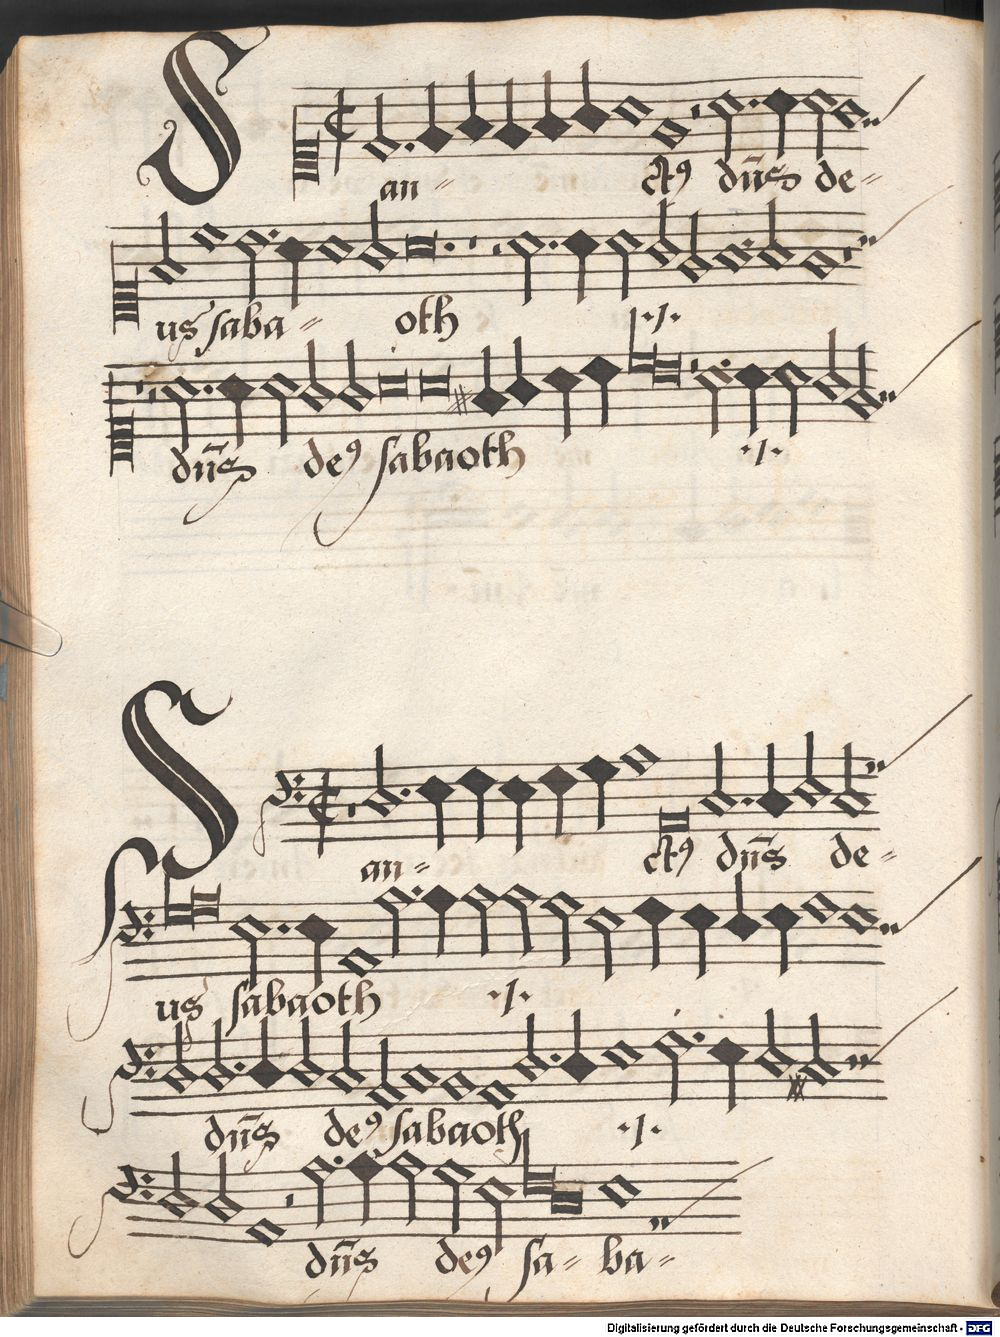 San- ctꝰ dn̄s de-
us saba- oth ·/·
dn̄s deꝰ sabaoth ·/·
San- ctꝰ dn̄s de-
us sabaoth ·/·
dn̄s deꝰ sabaoth ·/·
dn̄s deꝰ sa- ba-
Digitalisierung gefördert durch die Deutsche Forschungsgemeinschaft - DFG